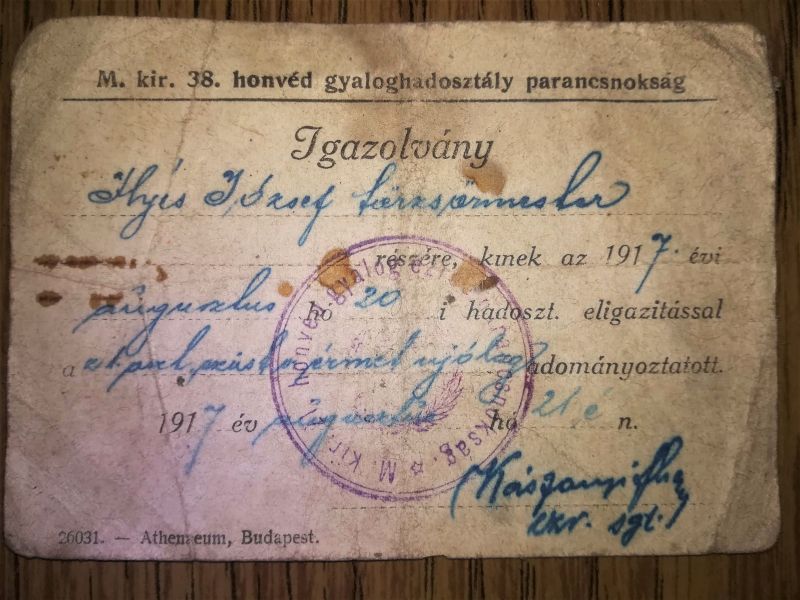 M. kir. 38. honvéd gyaloghadosztály parancsnokság
Igazolvány
Ilyés József törzsőrmester
részére, kinek az 1917. évi
augusztus hó 20 i hadoszt. eligazitással
a ujólag adományoztatott.
1917 év augusztus hó 21 é n.
ezr. sgt.
M. kir. honvéd gyalog parancsnokság.
26031. — Athenæum, Budapest.